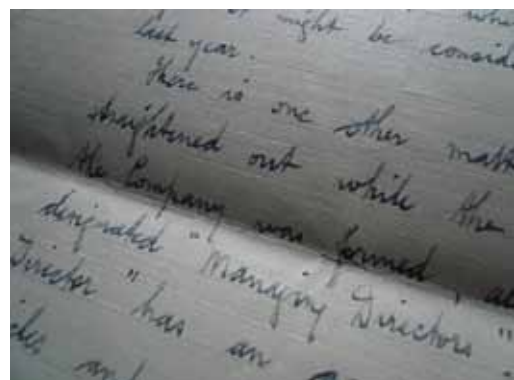 might be consid
last year.
There is one other matt
straightened out while the
the Company was formed, al
designated "Managing Directors"
Director" has an
and